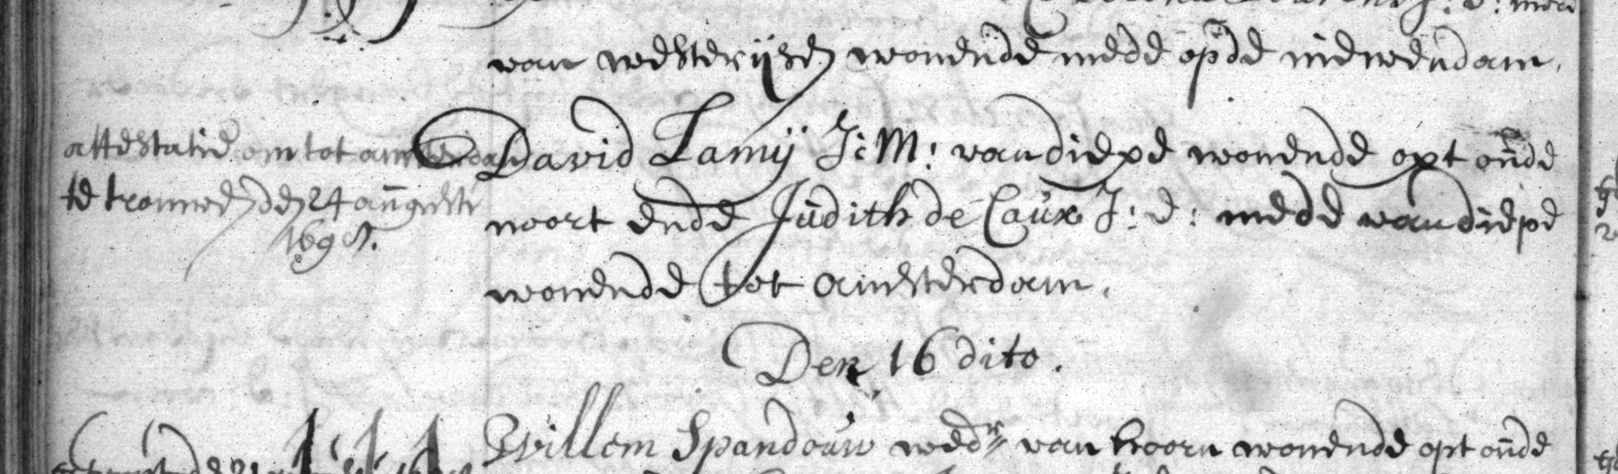 van westerijsen wonende mede opde niewendam,
attestatie om tot amsterdam
te trouwen den 24 augusti
David Lamij J: M: van diepe wonende opt oude
noort ende Judith de Caux J: d: mede van diepe
wonende tot amsterdam.
Den 16 dito.
Willem Spandouw wedr van hoorn wonende opt oude